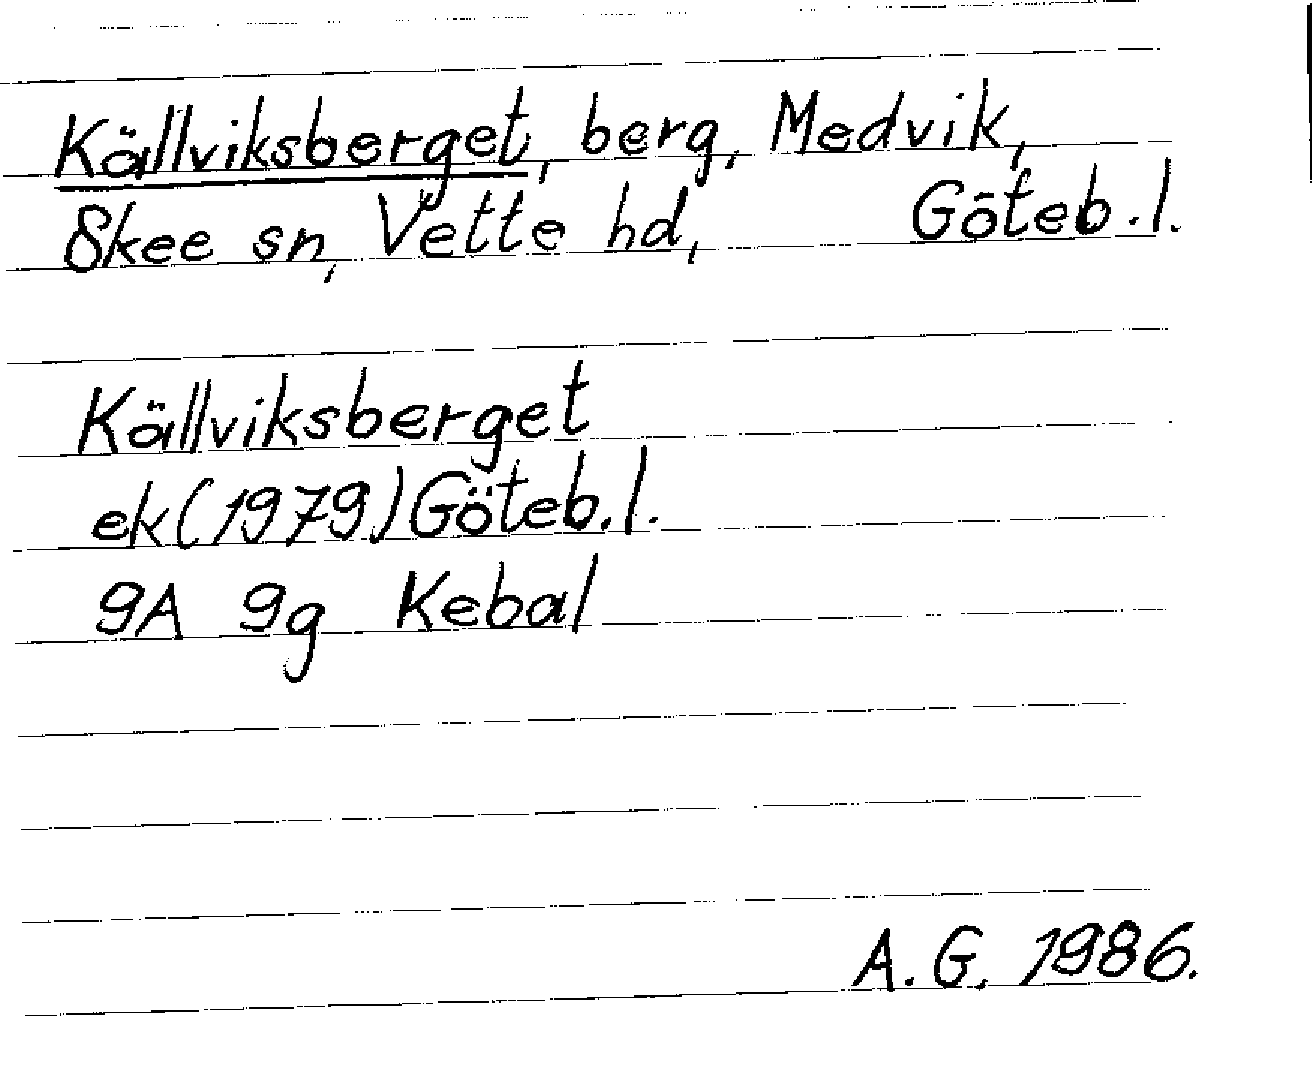 Källviksberget, berg, Medvik,
Skee sn, Vette hd, Göteb.l.
Källviksberget
ek(1979)Göteb.l.
9A 9g Kebal
A.G. 1986.